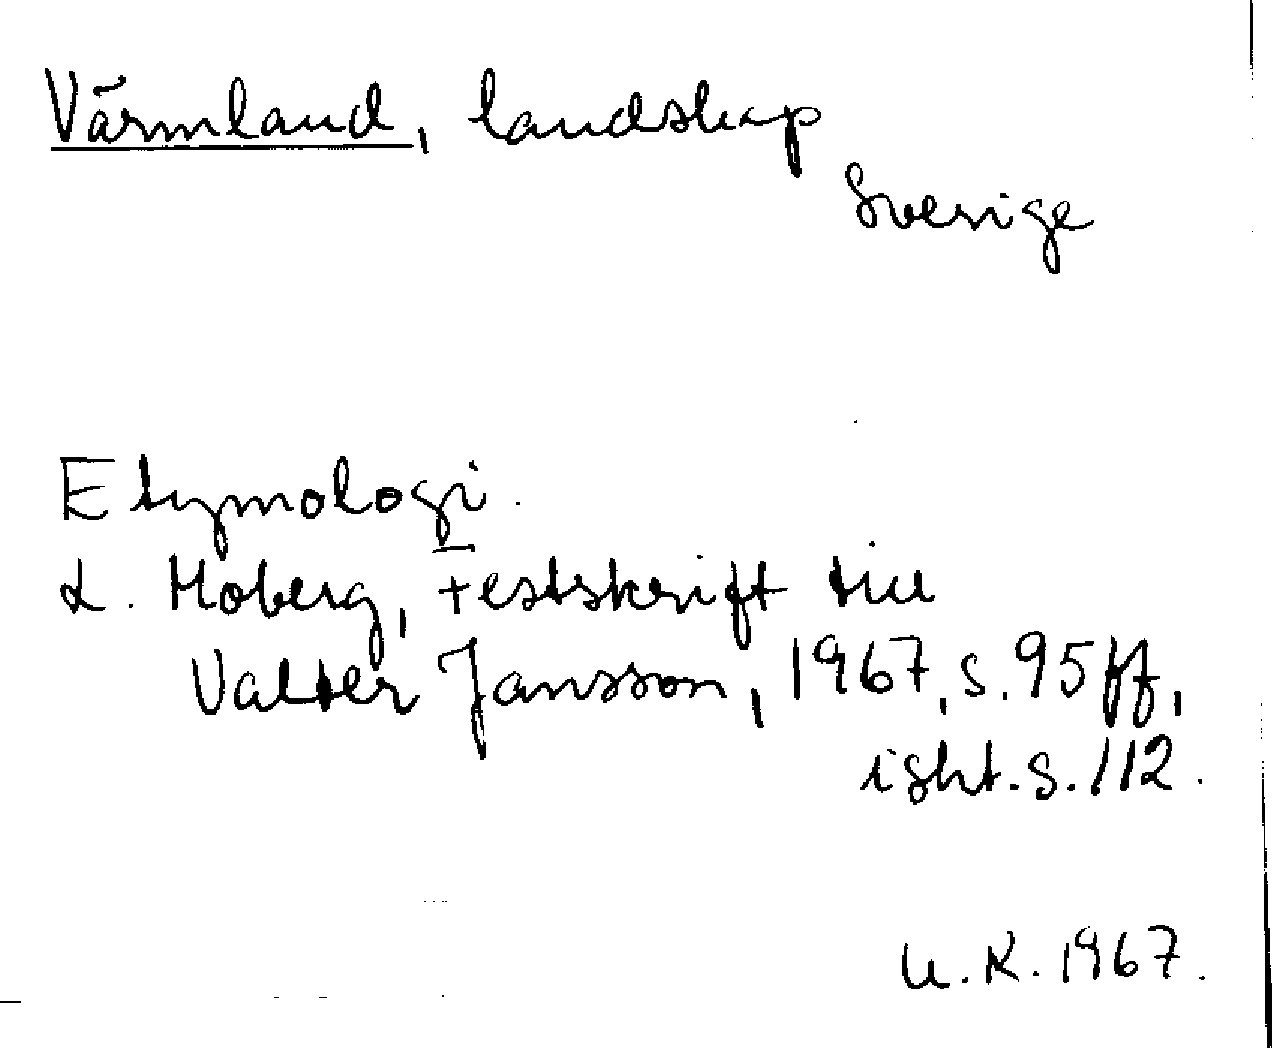 Värmland, landskap
Sverige
Etymologi.
L. Moberg, Festskrift till
Valter Jansson, 1967, s. 95 ff,
isht. s. 112.
U.K. 1967.